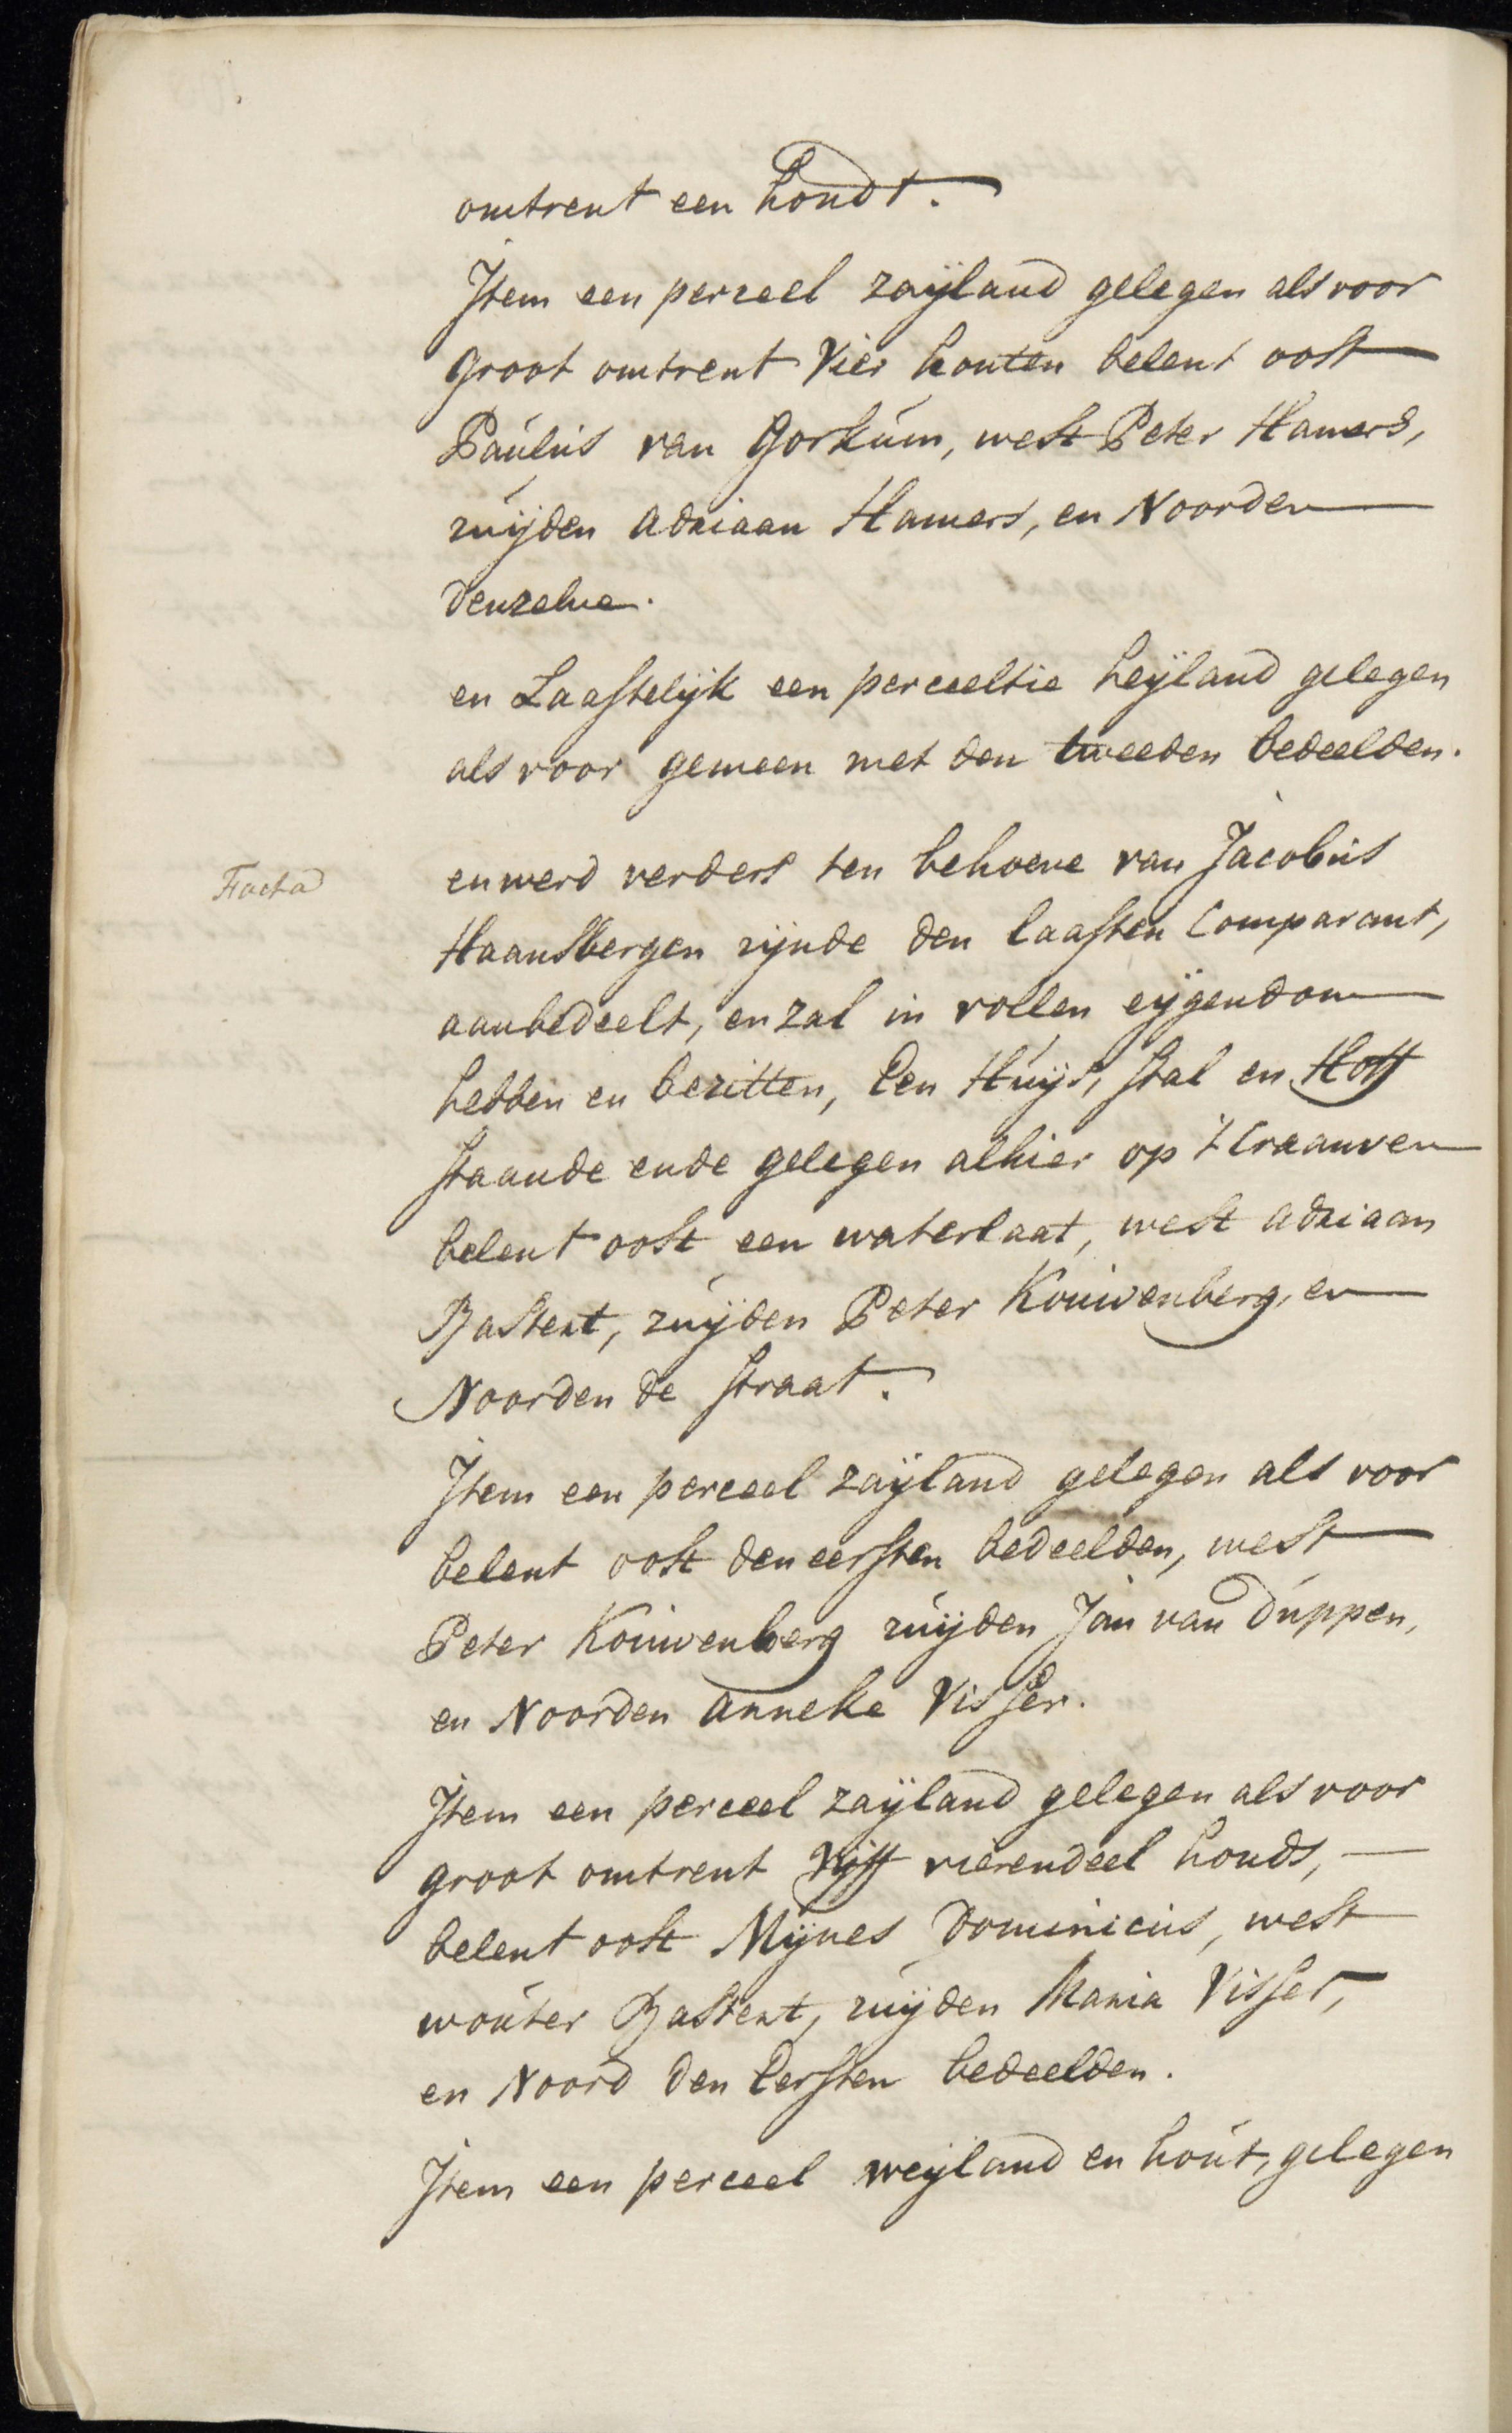 omtrent een hondt.
Item een perceel zaijland gelegen als voor
groot omtrent vier honten belent oost
Paulus van Gorkum, west Peter Hamers,
zuijden Adriaan Hamers, en Noorden
denzelve.
en Laastelijk een perceeltie heijland gelegen
als voor gemeen met den tweeden bedeelden.
Facta
en werd verders ten behoeve van Jacobus
Haansbergen zijnde den laasten Comparant,
aanbedeelt, en zal in vollen eijgendom
hebben en bezitten, Een Huijs, stal en Hoff
staande ende gelegen alhier op 't Craanven
belent oost een waterlaat, west Adriaan
Bastert, zuijden Peter Kouwenberg, en
Noorden de straat.
Item een perceel zaijland gelegen als voor
belent oost den eersten bedeelden, west
Peter Kouwenberg zuijden Jan van Duppen,
en Noorden Anneke Visser.
Item een perceel zaijland gelegen als voor
groot omtrent Vijff vierendeel honds,
belent oost Mijnes Dominicus, west
wouter Bastert, zuijden Maria Visser,
en Noord den Eersten bedeelden.
Item een perceel weijland en hout, gelegen